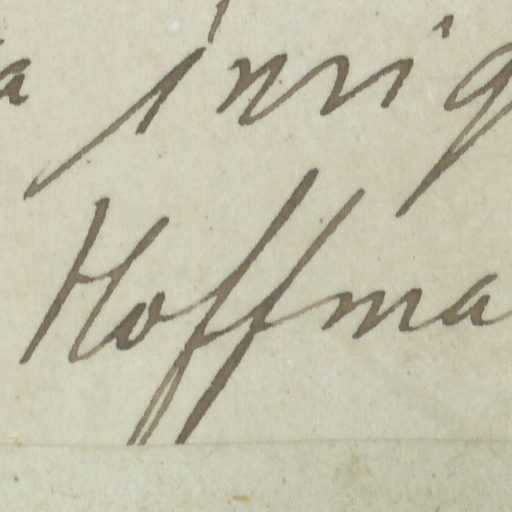 a innig
Hoffma